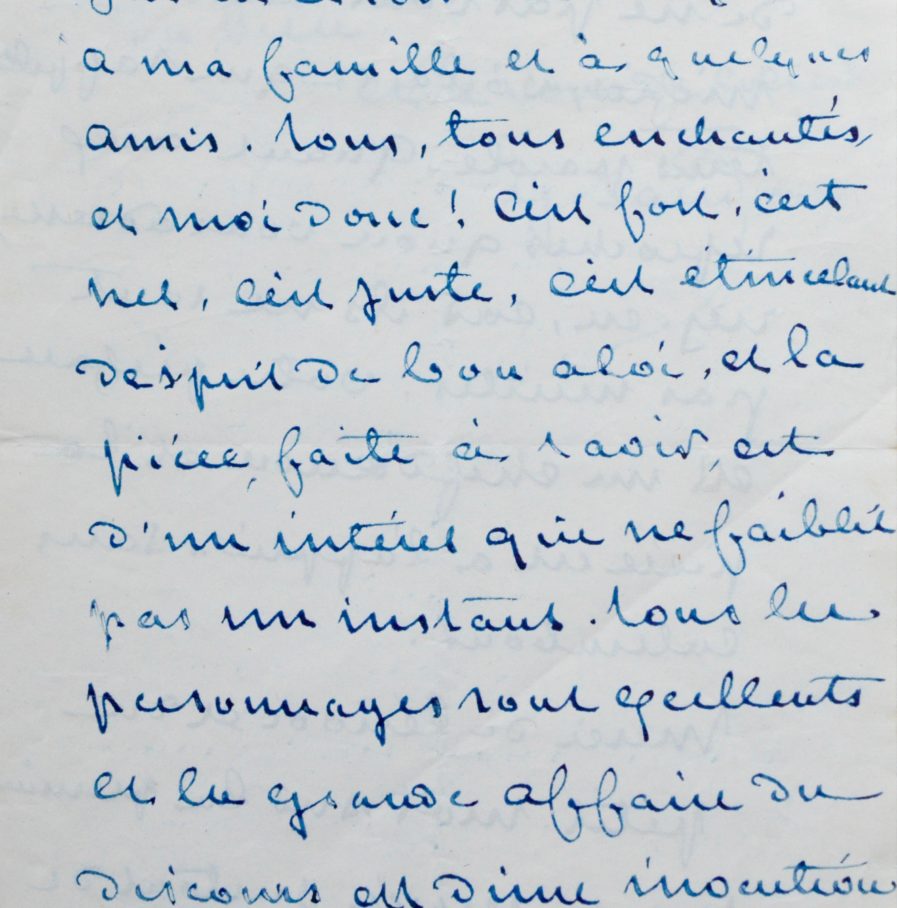 à ma famille et à quelques
amis. Tous, tous enchantés,
et moi donc! C'est fort, c'est
net, c'est juste, c'est étincelant
d'esprit de bon aloi, et la
pièce, faite à ravir, est
d'un intérêt qui ne faiblit
pas un instant. Tous les
personnages sont excellents
et la grande affaire du
discours est d'une